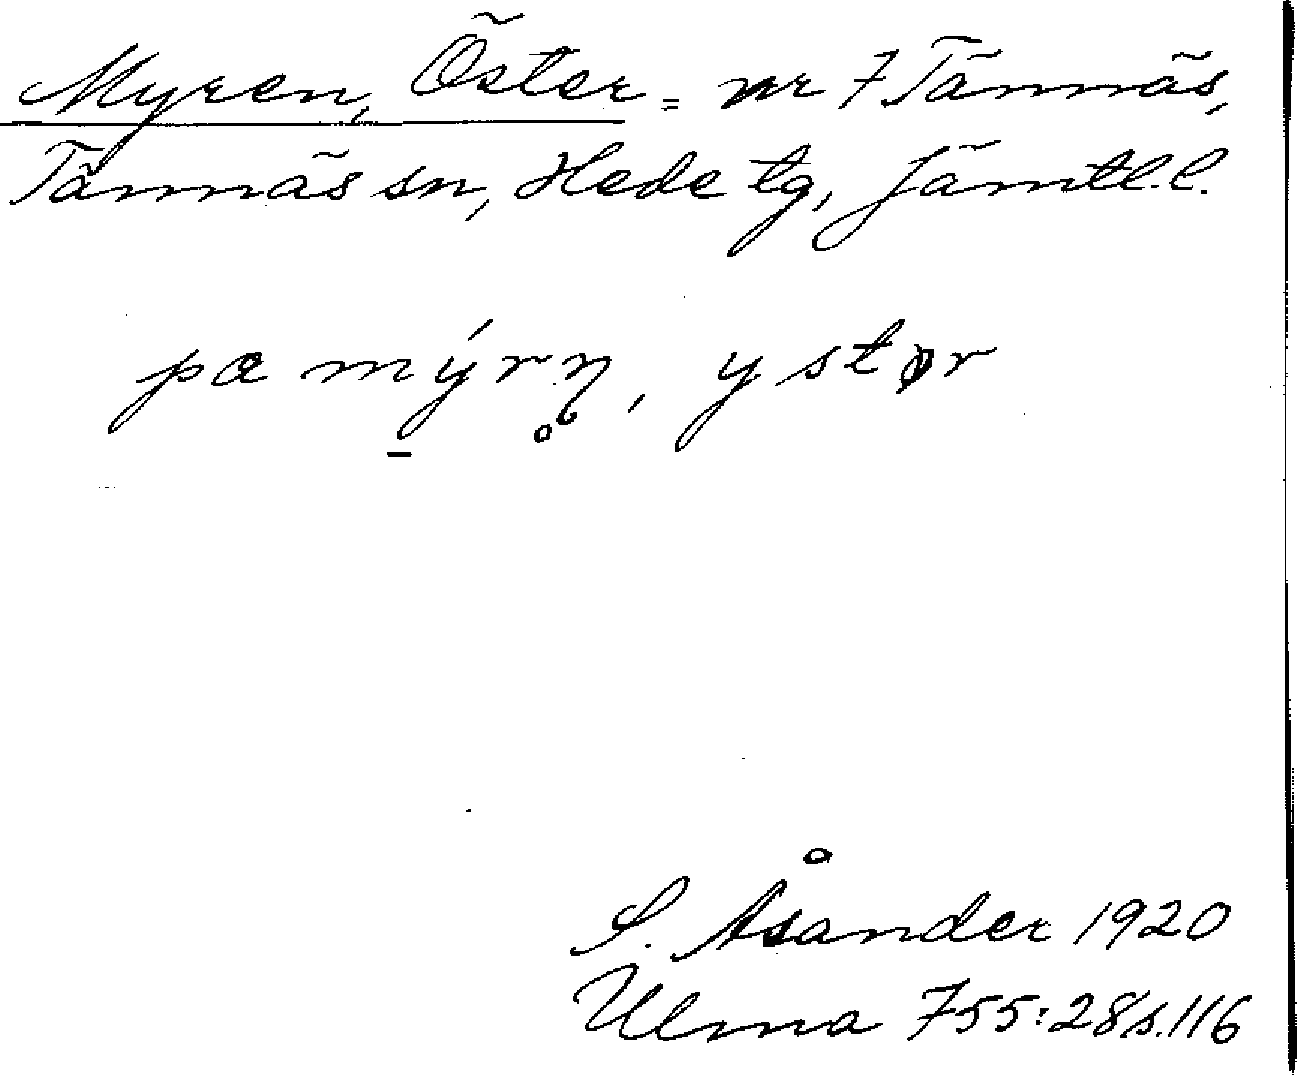 Myren, Öster- nr 7 Tännäs,
Tännäs sn, Hede tg, Jämtl.l.
pæ mýrn̥, ystər
S. Åsander 1920
Ulma 755:28 s.116